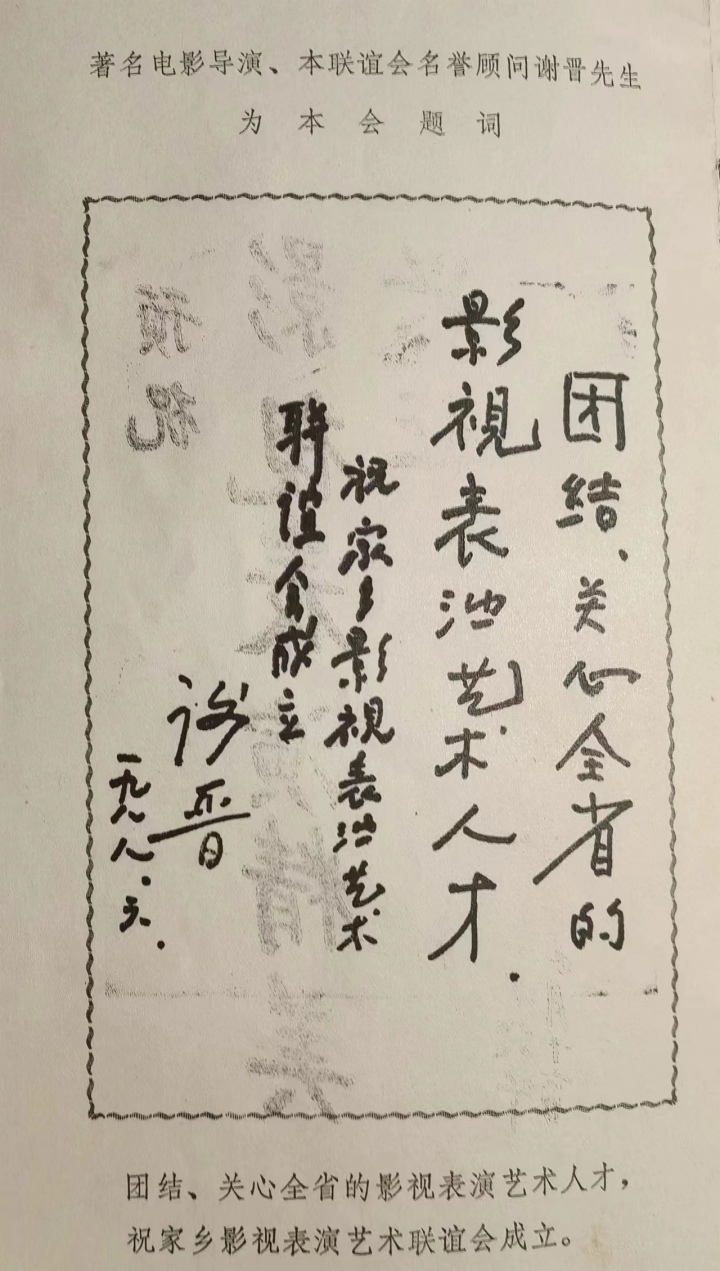 著名电影导演、本联谊会名誉顾问谢晋先生
为本会题词
团结、关心全省的
影視表演艺术人才.
祝家乡影視表演艺术
联谊会成立
谢晋
一九八八.六.
团结、关心全省的影视表演艺术人才，
祝家乡影视表演艺术联谊会成立。